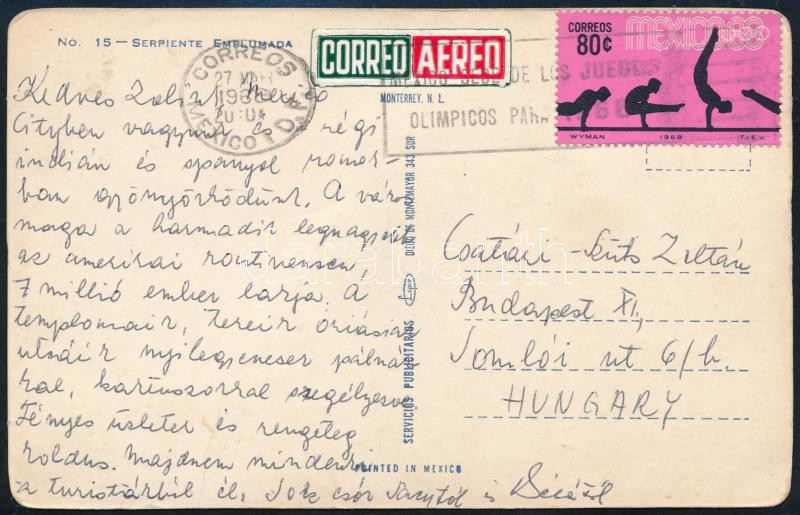 No. 15 — SERPIENTE EMPLUMADA
CORREO AEREO
CORREOS
80¢
MEXICO68
WYMAN 1968 T.I.E.V.
CORREOS
27
196
MEXICO 1 D.F.
MEXICO SEDE DE LOS JUEGOS
OLIMPICOS PARA
MONTERREY, N. L.
DIEGO DE MONTEMAYOR 343 SUR
SERVICIOS PUBLICITARIOS
PRINTED IN MEXICO
Kedves Zoli! Mexico
Cityben vagyunk és régi
indián és spanyol romok-
ban gyönyörködünk. A város
maga a harmadik legnagyobb
az amerikai kontinensen,
7 millió ember lakja. A
templomaik, tereik óriásiak
utcáik nyílegyenesek pálmák-
kal, kaktuszokkal szegélyezve
Fényes üzletek és rengeteg
koldus. Majdnem mindenki
a turistákból él. Sok csók
Csatári-Szüts Zoltán
Budapest XI.
Somlói út 6/b.
HUNGARY
darabanth